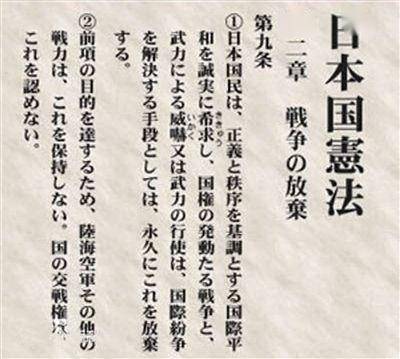 日本国憲法
二章 戦争の放棄
第九条
①日本国民は、正義と秩序を基調とする国際平
ききゅう
和を誠実に希求し、国権の発動たる戦争と、
いかく
武力による威嚇又は武力の行使は、国際紛争
を解決する手段としては、永久にこれを放棄
する。
②前項の目的を達するため、陸海空軍その他の
戦力は、これを保持しない。国の交戦権
これを認めない。